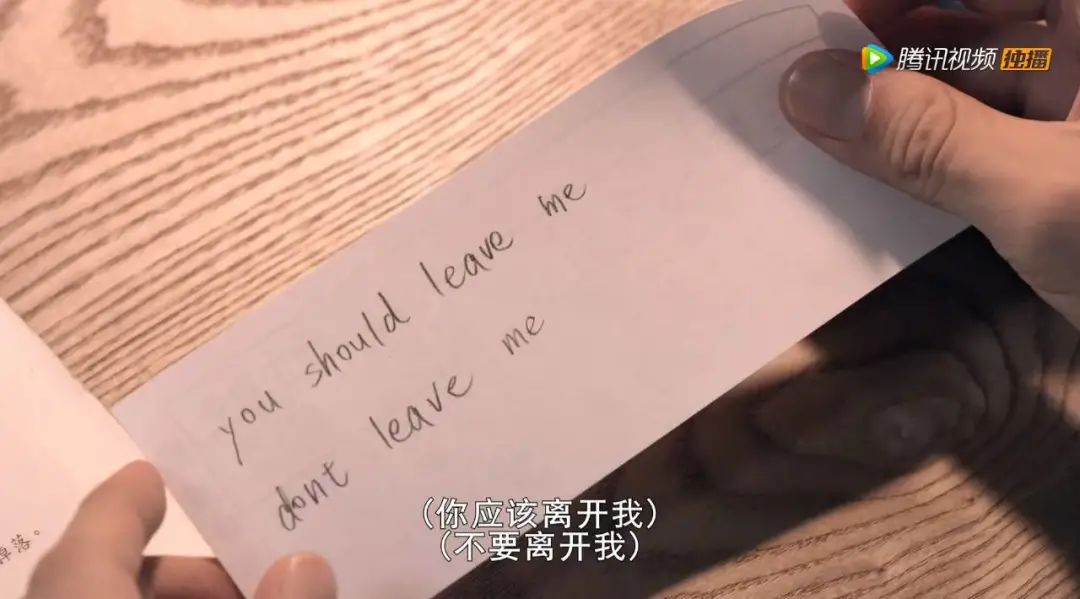 腾讯视频 独播
you should leave me
dont leave me
落。
（你应该离开我）
（不要离开我）